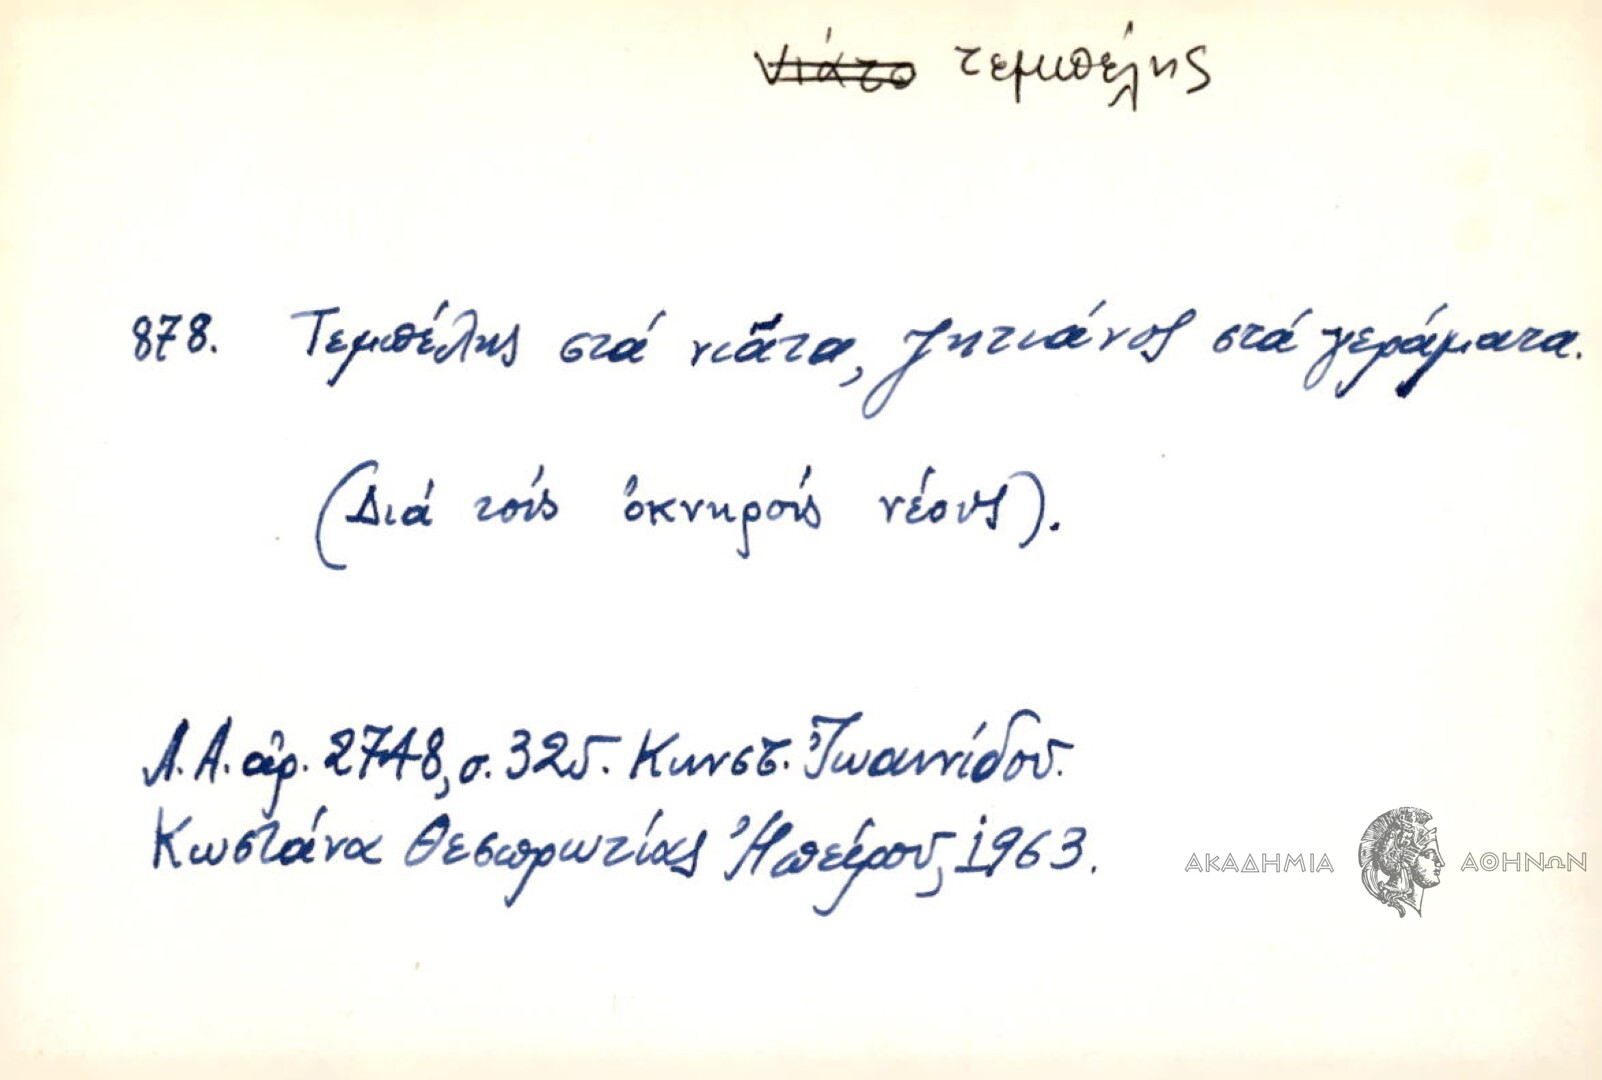 νιάτο τεμπέλης
878. Τεμπέλης στά νιᾶτα, ζητιάνος στά γεράματα.
(Διά τούς ὀκνηρούς νέους).
Λ.Α. ἀρ. 2748, σ. 325. Κωνστ. Ἰωαννίδου.
Κωστάνα Θεσπρωτίας Ἠπείρου, 1963.
ΑΚΑΔΗΜΙΑ ΑΘΗΝΩΝ